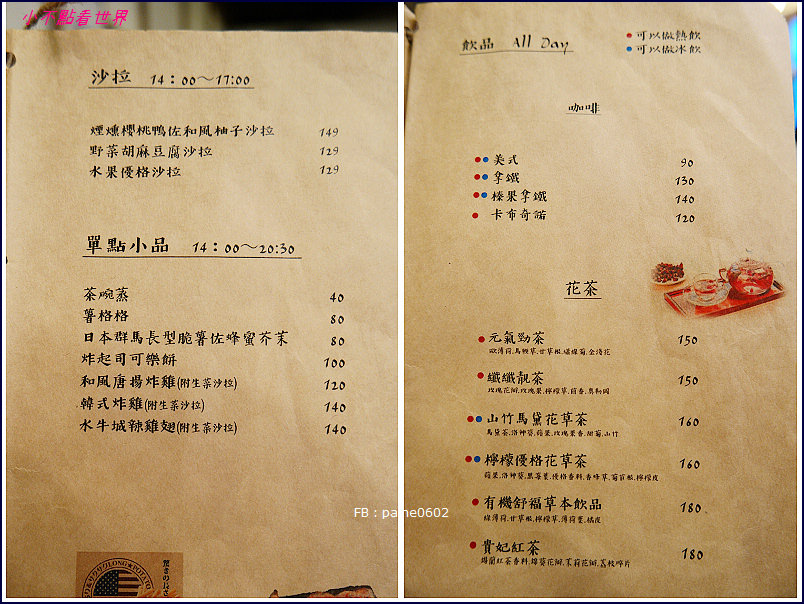 小不點看世界
沙拉 14：00～17:00
煙燻櫻桃鴨佐和風柚子沙拉 149
野菜胡麻豆腐沙拉 129
水果優格沙拉 129
單點小品 14：00～20:30
茶碗蒸 40
薯格格 80
日本群馬長型脆薯佐蜂蜜芥茉 80
炸起司可樂餅 100
和風唐揚炸雞(附生菜沙拉) 120
韓式炸雞(附生菜沙拉) 140
水牛城辣雞翅(附生菜沙拉) 140
LONG★POTATO
驚きの長さ
飲品 All Day
可以做熱飲
可以做冰飲
咖啡
美式 90
拿鐵 130
榛果拿鐵 140
卡布奇諾 120
花茶
元氣勁茶 150
歐薄荷.馬鞭草.甘草根.
纖纖靚茶 150
玫瑰花瓣.玫瑰果.檸檬草.茴香.奧勒岡
山竹馬黛花草茶 160
馬黛茶.洛神葵.蘋果.玫瑰果香.甜菊.山竹
檸檬優格花草茶 160
蘋果.洛神葵.黑莓葉.優格香料.香蜂草.菊苣根.檸檬皮
有機舒福草本飲品 180
綠薄荷.甘草根.檸檬草.薄荷葉.橘皮
貴妃紅茶 180
錫蘭紅茶香料.錦葵花瓣.茉莉花瓣.荔枝碎片
FB：paine0602